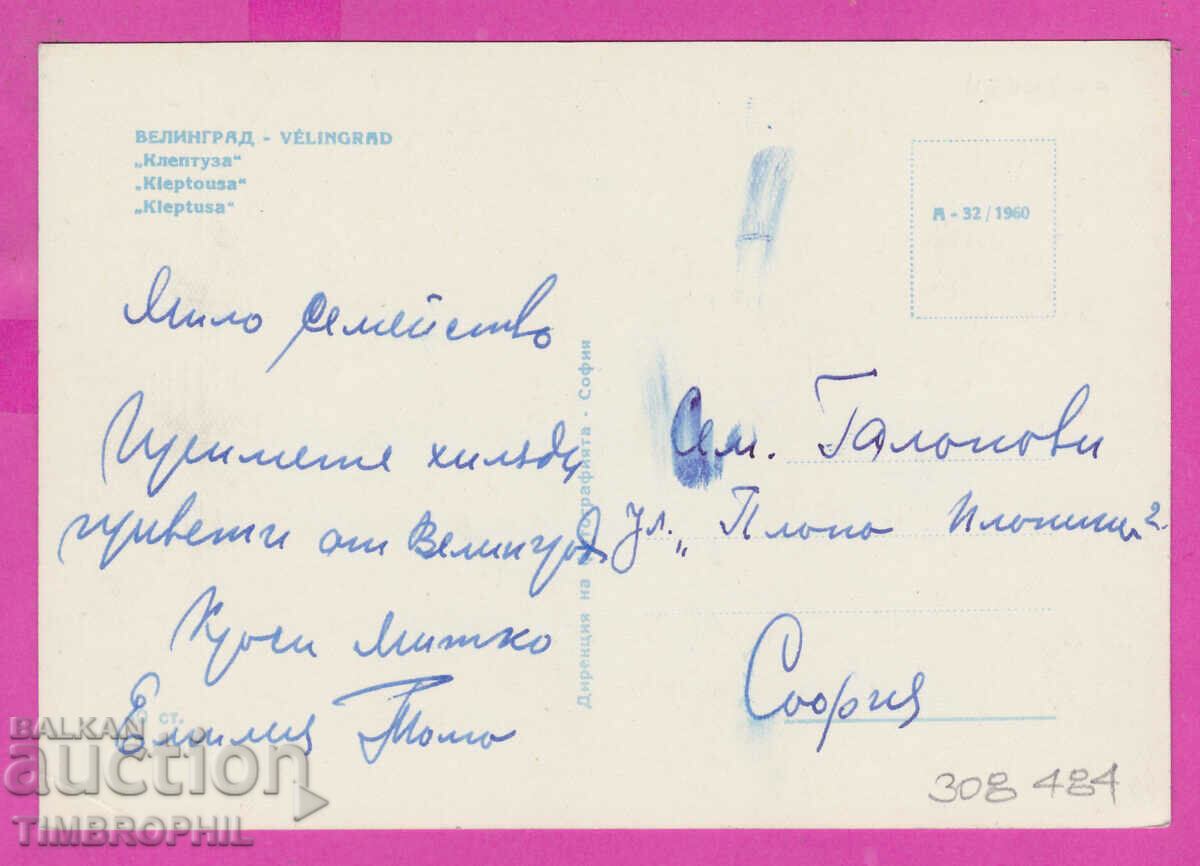 ВЕЛИНГРАД - VÉLINGRAD
„Клептуза“
„Kleptousa“
„Kleptusa“
А - 32 / 1960
Мило семейство
Приемете хиляди
приветы от Велинград
Митко
Емилия Томо
ст.
Дирекция на фотографията - София
Сем. Галопови
ул. „
София
308 484
BALKAN
auction
TIMBROPHIL